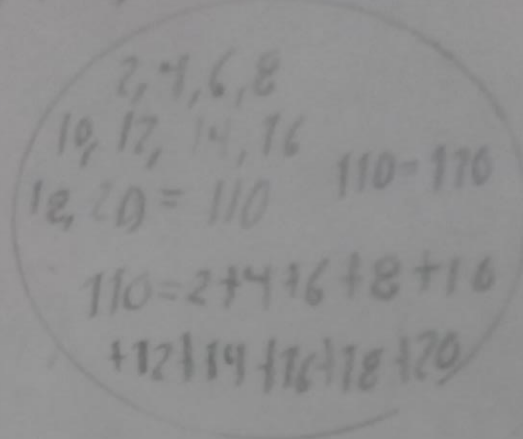 2, 4, 6, 8
10, 12, 14, 16
18, 20 = 110
110 = 110
110 = 2+4+6+8+10
+12+14+16+18+20